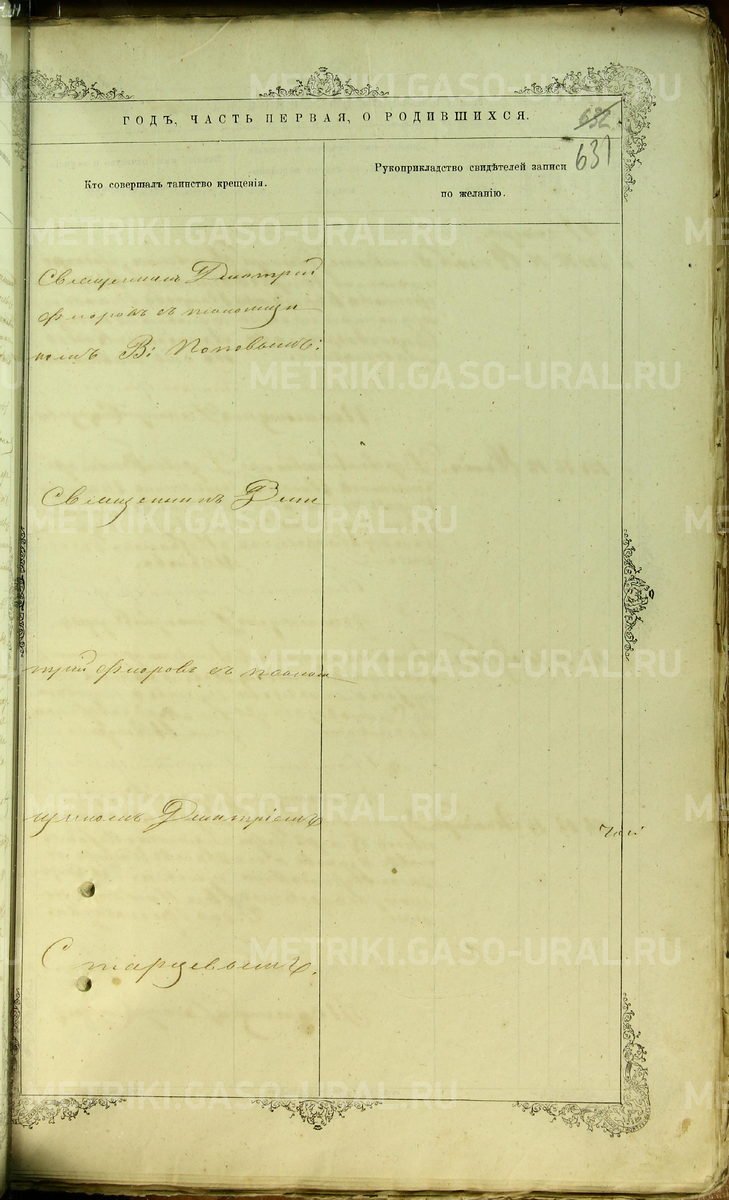 ГОДЪ, ЧАСТЬ ПЕРВАЯ, О РОДИВШИХСЯ.
632
631
Кто совершалъ таинство крещенія.
Рукоприкладство свидѣтелей записи
по желанію.
Священникъ Дмитрій
Флоровъ съ псаломщи
комъ В: Поповымъ:
Священникъ Дми
трій Флоровъ съ псалом
щикомъ Дмитріемъ
Старцевымъ.
METRIKI.GASO-URAL.RU